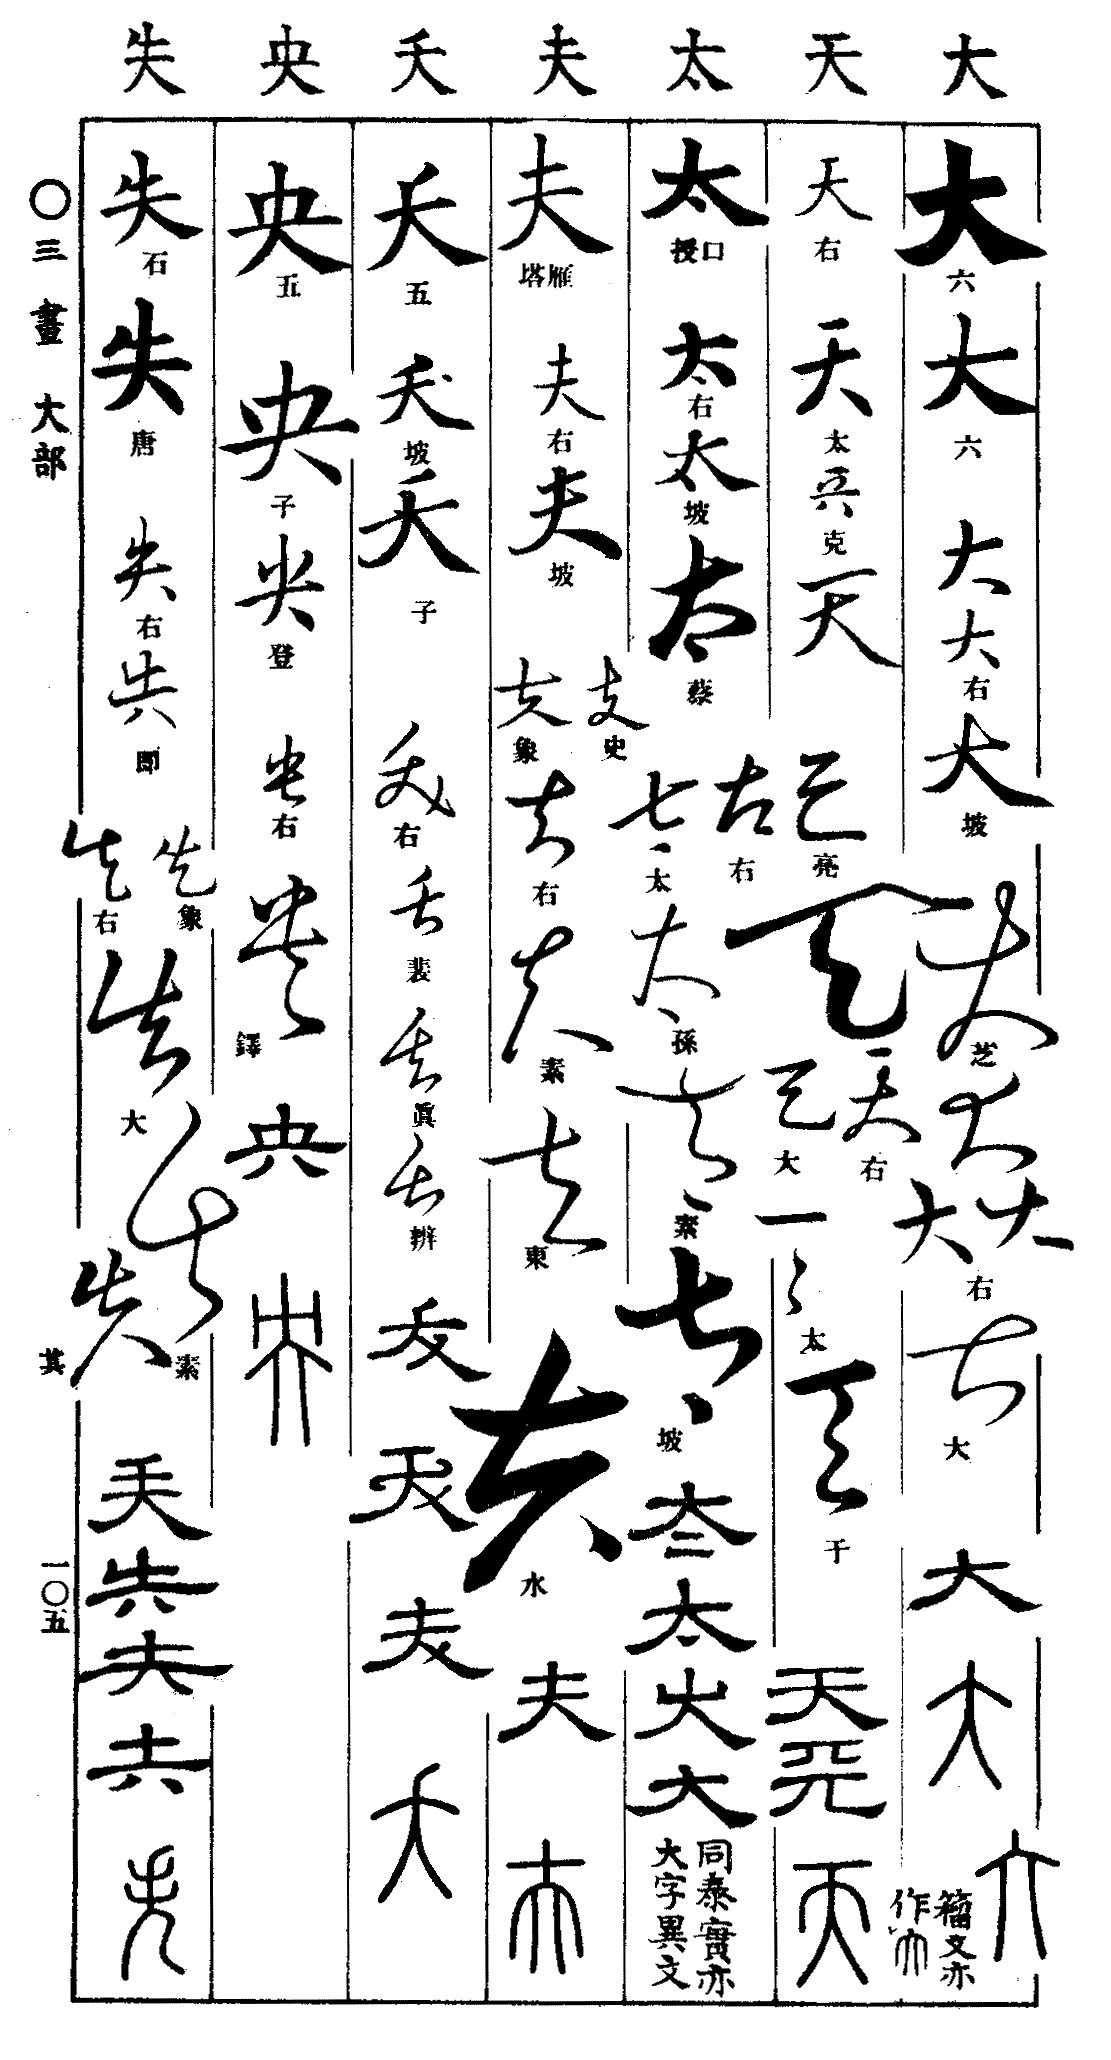 大 天 太 夫 夭 央 失
大 六 大 六 大 大 右 大 坡 大 芝 大 大 大 右 大 大 大 大 大 籀文亦作
天 右 天 太 兲 克 天 天 亮 天 天 右 天 大 天 太 天 千 天 天 天
太 口授 太 右 太 坡 太 蔡 太 右 太 太 太 孫 太 素 太 坡 太 太 太 太 同泰實亦大字異文
夫 雁塔 夫 右 夫 坡 夫 史 夫 象 夫 右 夫 素 夫 東 夫 水 夫 夫
夭 五 夭 坡 夭 子 夭 右 夭 裴 夭 眞 夭 辨 夭 夭 夭 夭
央 五 央 子 央 登 央 右 央 鐸 央 央
失 石 失 唐 失 右 失 即 失 象 失 右 失 大 失 素 失 其 失 失 失 失 失
〇三畫 大部
一〇五